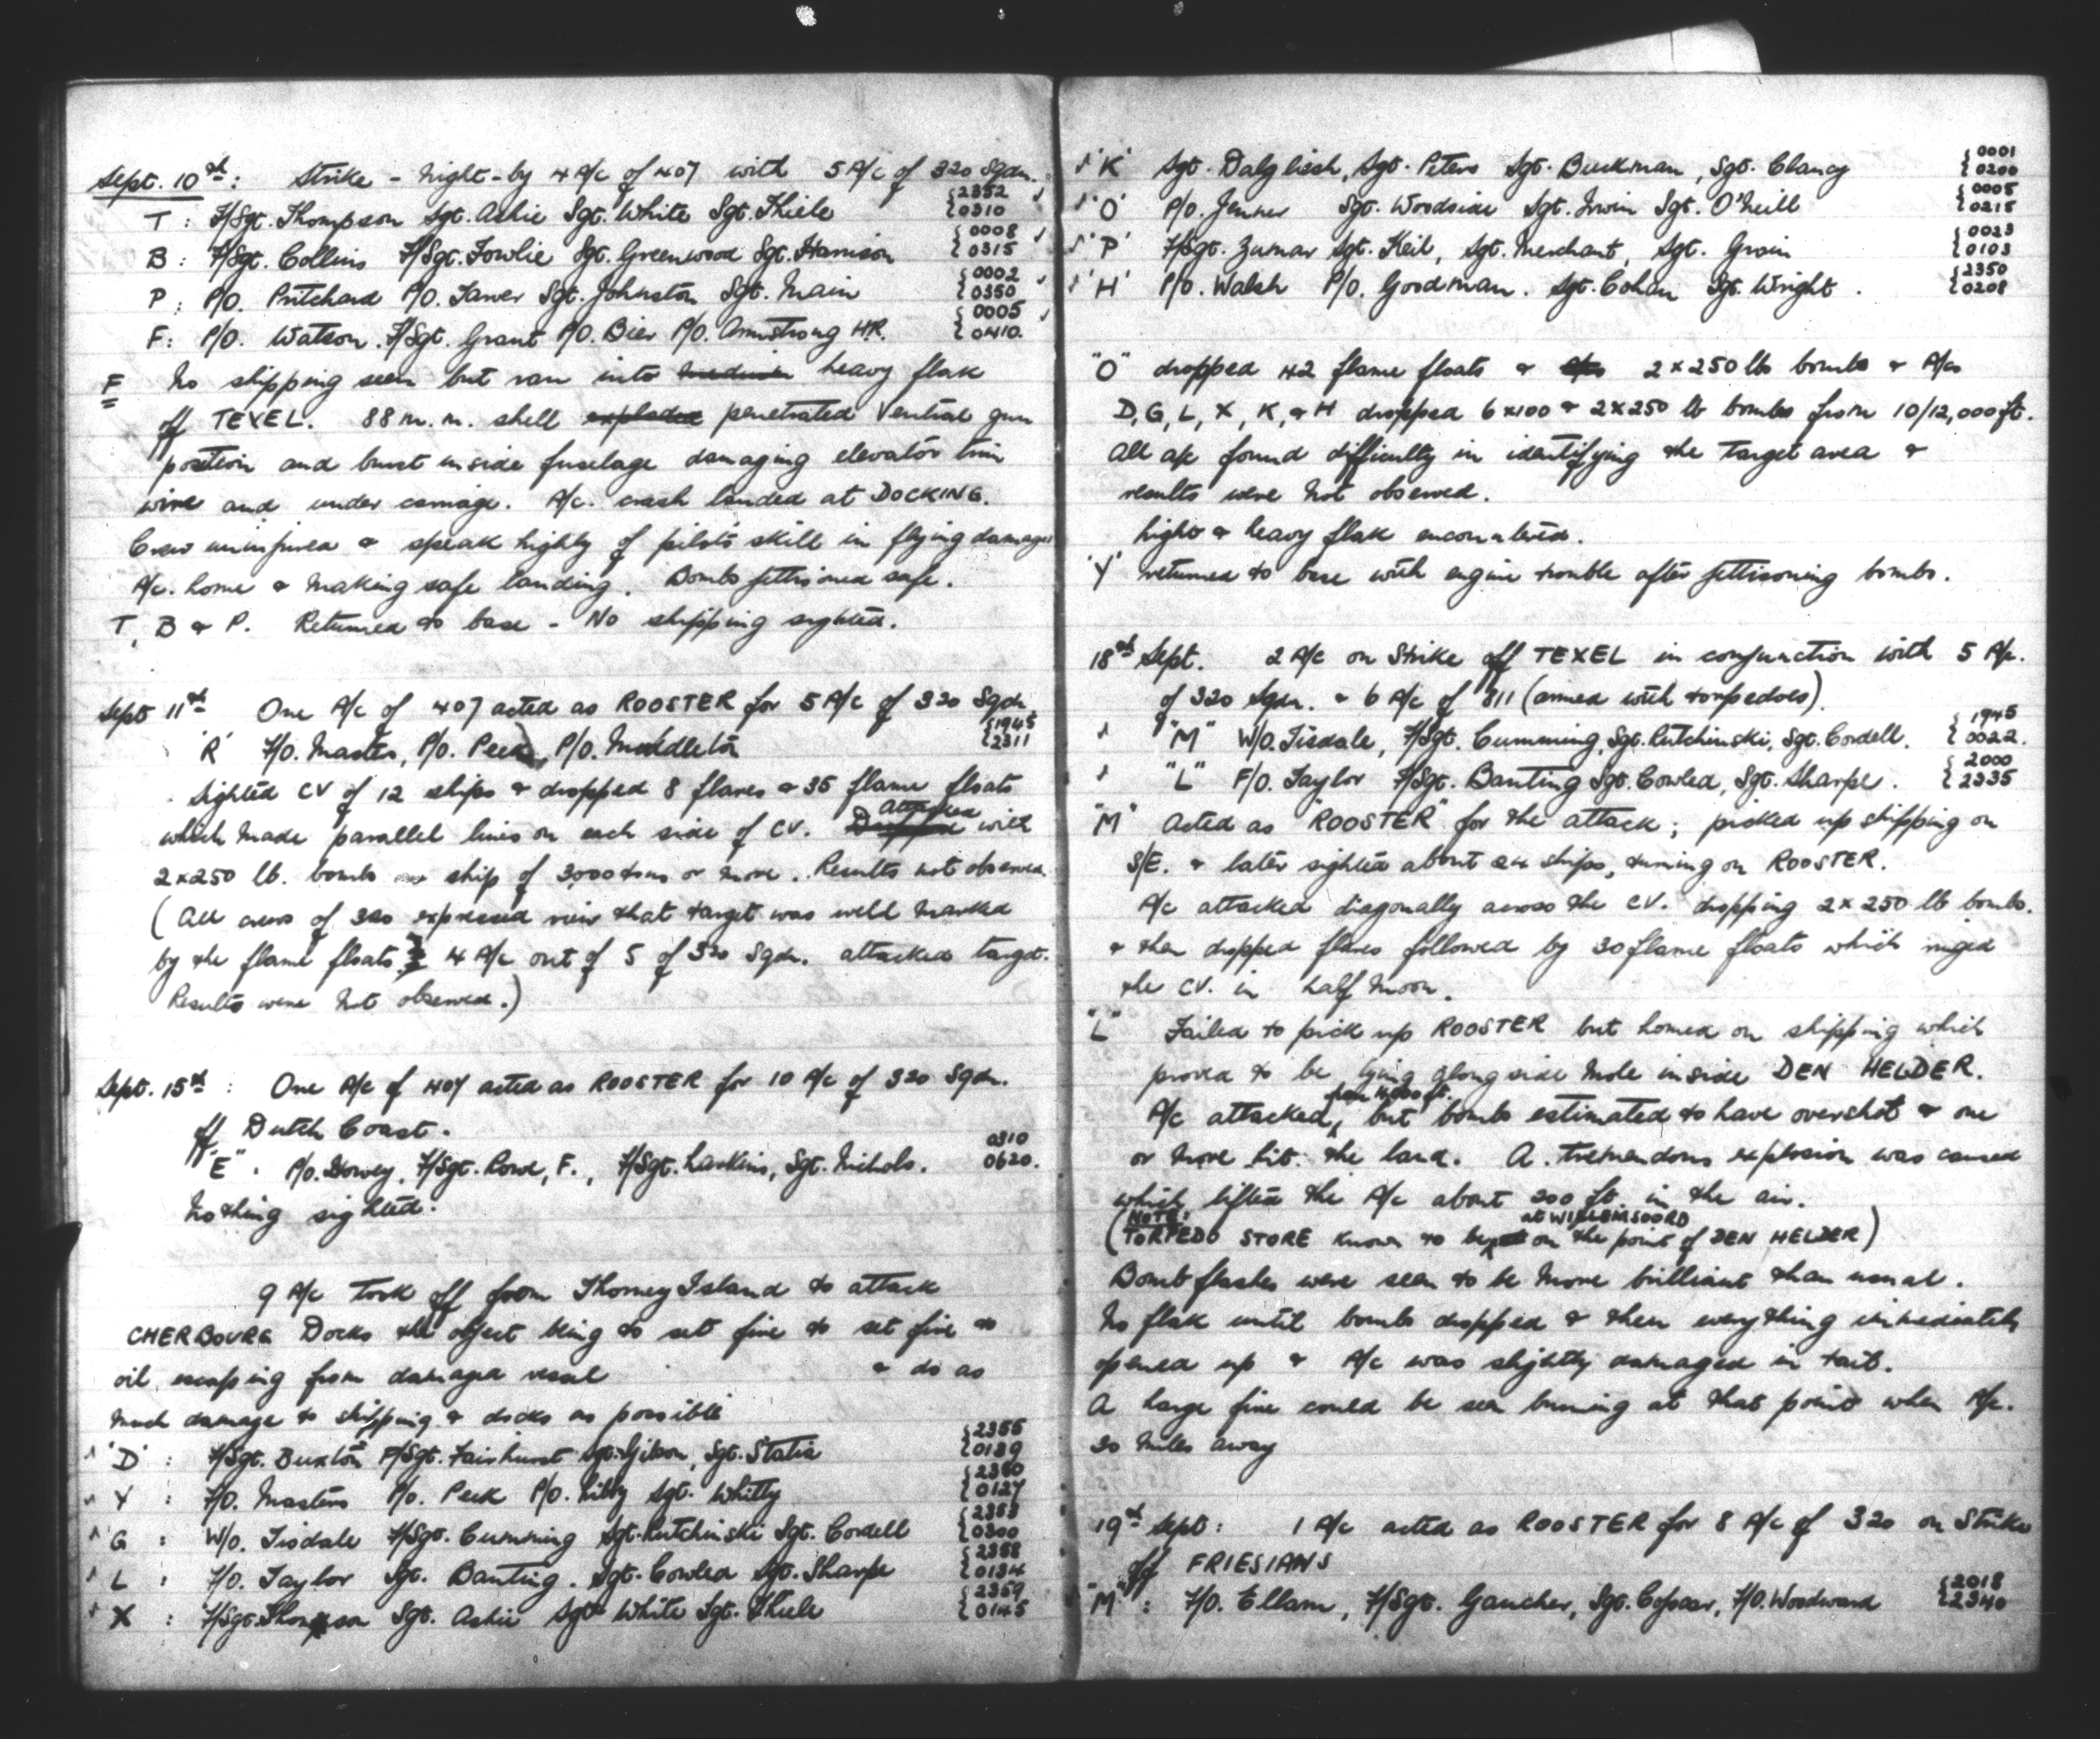 Sept. 10th: Strike - Night - by 4 A/c of 407 with 5 A/c of 320 Sqdn.
T : F/Sgt. Thompson Sgt. Ashie Sgt. White Sgt. Thiele {2352 0310
B : F/Sgt. Collins F/Sgt. Fowlie Sgt. Greenwood Sgt. Harrison {0008 0315
P : P/O. Pritchard P/O. Tawer Sgt. Johnston Sgt. Main {0002 0350
F : P/O. Watson. F/Sgt. Grant P/O. Bier P/O. Armstrong H.R. {0005 0410.
F No shipping seen but ran into medium heavy flak
off TEXEL. 88 m.m. shell exploded penetrated ventral gun
position and burst inside fuselage damaging elevator trim
wire and under carriage. A/c. crash landed at DOCKING.
Crew uninjured & speak highly of pilots skill in flying damaged
A/c. home & making safe landing. Bombs jettisoned safe.
T, B & P. Returned to base - No shipping sighted.
Sept 11th One A/c of 407 acted as ROOSTER for 5 A/c of 320 Sqdn.
'R' F/O. Masters, P/O. Peek, P/O. Middleton {1945 2311
Sighted CV of 12 ships & dropped 8 flares & 36 flame floats
which made parallel lines on each side of CV. Dropped Attacked with
2x250 lb. bombs ship of 3000 tons or more. Results not observed.
(All crews of 320 expressed view that target was well marked
by the flame floats. 4 A/c out of 5 of 320 Sqdn. attacked target.
Results were not observed.)
Sept. 15th : One A/c of 407 acted as ROOSTER for 10 A/c of 320 Sqdn.
off Dutch Coast.
"E" . P/O. Howey, F/Sgt. Rowe, F., F/Sgt. Larkins, Sgt. Nichols. 0310 0620.
Nothing sighted.
9 A/c took off from Thorney Island to attack
CHERBOURG Docks the object being to set fire to set fire to
oil escaping from damaged vessel & do as
much damage to shipping & docks as possible
'D' : F/Sgt. Buxton F/Sgt. Fairhurst Sgt. Gibson, Sgt. Statia {2355 0139
Y : F/O. Masters P/O. Peek P/O. Libby Sgt. Whitty {2350 0127
G : W/O. Tisdale F/Sgt. Cumming Sgt. Rutchinski Sgt. Cordell {2353 0300
L : F/O. Taylor Sgt. Banting. Sgt. Cowled Sgt. Sharpe {2358 0134
X : F/Sgt. Thompson Sgt. Ashie Sgt. White Sgt. Thiele {2359 0145
'K' Sgt. Dalglish, Sgt. Peters Sgt. Buckman, Sgt. Clancy {0001 0200
'O' P/O. Jenner Sgt. Woodside Sgt. Irwin Sgt. O'Neill {0005 0215
'P' F/Sgt. Zumar Sgt. Keil, Sgt. Merchant, Sgt. Grain {0023 0103
'H' P/O. Walsh P/O. Goodman. Sgt. Cohen Sgt. Wright. {2350 0208
"O" dropped 42 flame floats & 2x250 lb bombs & A/cs
D, G, L, X, K, & H dropped 6x100 & 2x250 lb bombs from 10/12,000 ft.
All a/c found difficulty in identifying the target area &
results were not observed.
Light & heavy flak encountered.
'Y' returned to base with engine trouble after jettisoning bombs.
18th Sept. 2 A/c on Strike off TEXEL in conjunction with 5 A/c.
of 320 Sqdn. & 6 A/c of 811 (armed with torpedoes).
"M" W/O. Tisdale, F/Sgt. Cumming, Sgt. Rutchinski, Sgt. Cordell. {1945 0022.
"L" F/O. Taylor F/Sgt. Banting Sgt. Cowled, Sgt. Sharpe. {2000 2335
"M" Acted as "ROOSTER" for the attack; picked up shipping on
S/E. & later sighted about 24 ships, turning on ROOSTER.
A/c attacked diagonally across the CV. dropping 2x250 lb bombs.
& then dropped flares followed by 30 flame floats which ringed
the CV. in half moon.
"L" Failed to pick up ROOSTER but homed on shipping which
proved to be lying alongside Mole inside DEN HELDER.
A/c attacked, from 4000 ft. but bombs estimated to have overshot & one
or more hit the land. A. tremendous explosion was caused
which lifted the A/c about 200 ft. in the air.
(NOTE: TORPEDO STORE known to be at WILLEMSOORD on the point of DEN HELDER)
Bomb flashes were seen to be more brilliant than usual.
No flak until bombs dropped & then everything immediately
opened up & A/c was slightly damaged in tail.
A large fire could be seen burning at that point when A/c.
30 miles away
19th Sept : 1 A/c acted as ROOSTER for 8 A/c of 320 on Strike
off FRIESIANS
"M" : F/O. Ellam, F/Sgt. Gaucher, Sgt. Copear, F/O. Woodward {2018 2340